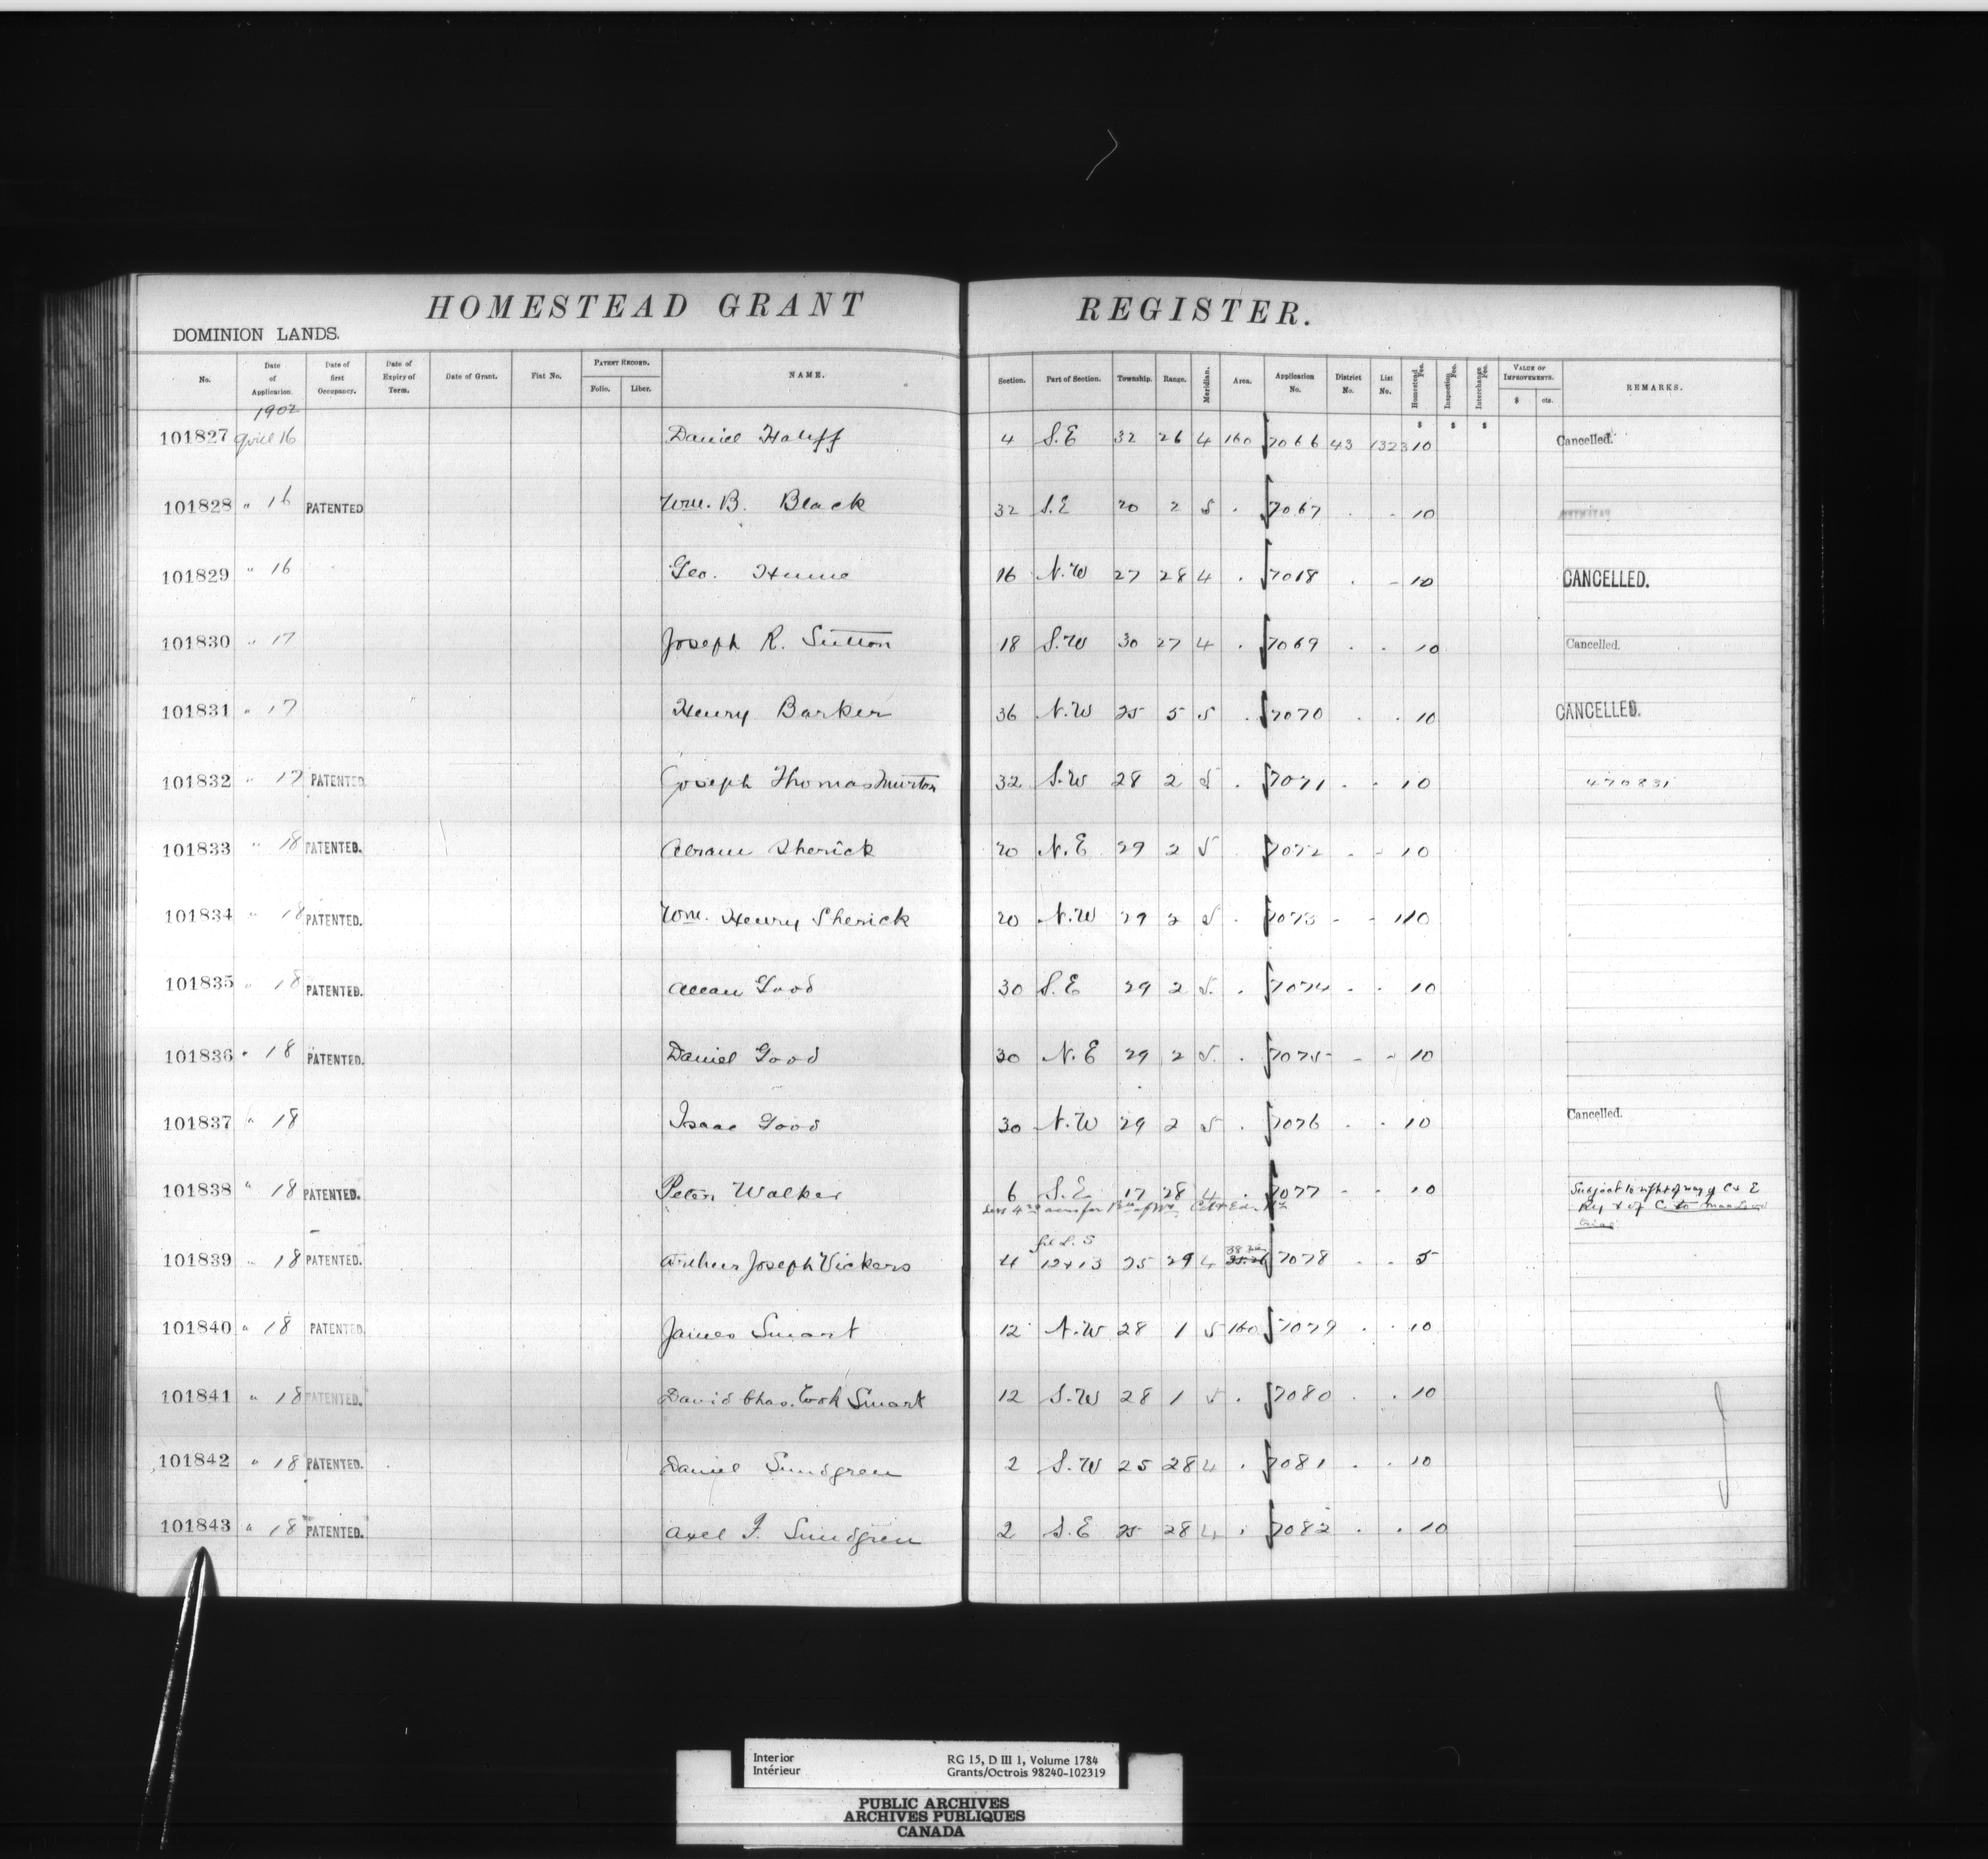 HOMESTEAD GRANT REGISTER.
DOMINION LANDS.
No. Date of Application. Date of first Occupancy. Date of Expiry of Term. Date of Grant. Fiat No. PATENT RECORD. Folio. Liber. NAME. Section. Part of Section. Township. Range. Meridian. Area. Application No. District No. List No. Homestead Fee. Inspection Fee. Interchange Fee. VALUE OF IMPROVEMENTS. $ cts. REMARKS.
1902 $ $ $
101827 April 16 Daniel 4 S.E 32 26 4 160 7066 43 1323 10 Cancelled.
101828 " 16 PATENTED Wm. B. Black 32 S.E 20 2 5 . 7067 . - 10
101829 " 16 Geo. 16 N.W 27 28 4 . 7018 . - 10 CANCELLED.
101830 " 17 Joseph R. Sutton 18 S.W 30 27 4 . 7069 . . 10 Cancelled.
101831 " 17 Henry Barker 36 N.W 25 5 5 . 7070 . . 10 CANCELLED.
101832 " 17 PATENTED Joseph Thomas Murton 32 S.W 28 2 5 . 7071 . . 10 470831
101833 " 18 PATENTED. Abram Sherick 20 N.E 29 2 5 . 7072 . - 10
101834 " 18 PATENTED. Wm. Henry Sherick 20 N.W 29 2 5 . 7073 - - 10
101835 " 18 PATENTED. Allan Good 30 S.E 29 2 5. . 7074 . . 10
101836 " 18 PATENTED. Daniel Good 30 N.E 29 2 5. . 7075 - - 10
101837 " 18 Isaac Good 30 N.W 29 2 5 . 7076 . . 10 Cancelled.
101838 " 18 PATENTED. Peter Walker 6 S.E 17 28 4 . 7077 - . 10 Subject to right of way of C & E
Less 4 acres for Ry & of C to
101839 " 18 PATENTED. Arthur Joseph Vickers 4 L.S 12 & 13 25 29 4 7078 . . 5
101840 " 18 PATENTED James Smart 12 N.W 28 1 5 160 7079 . . 10
101841 " 18 PATENTED. David Chas. Cook Smart 12 S.W 28 1 5 . 7080 . . 10
101842 " 18 PATENTED. Daniel Sundgren 2 S.W 25 28 4 . 7081 . . 10
101843 " 18 PATENTED. Axel F. Sundgren 2 S.E 25 28 4 . 7082 . . 10
Interior RG 15, D III 1, Volume 1784
Intérieur Grants/Octrois 98240-102319
PUBLIC ARCHIVES
ARCHIVES PUBLIQUES
CANADA